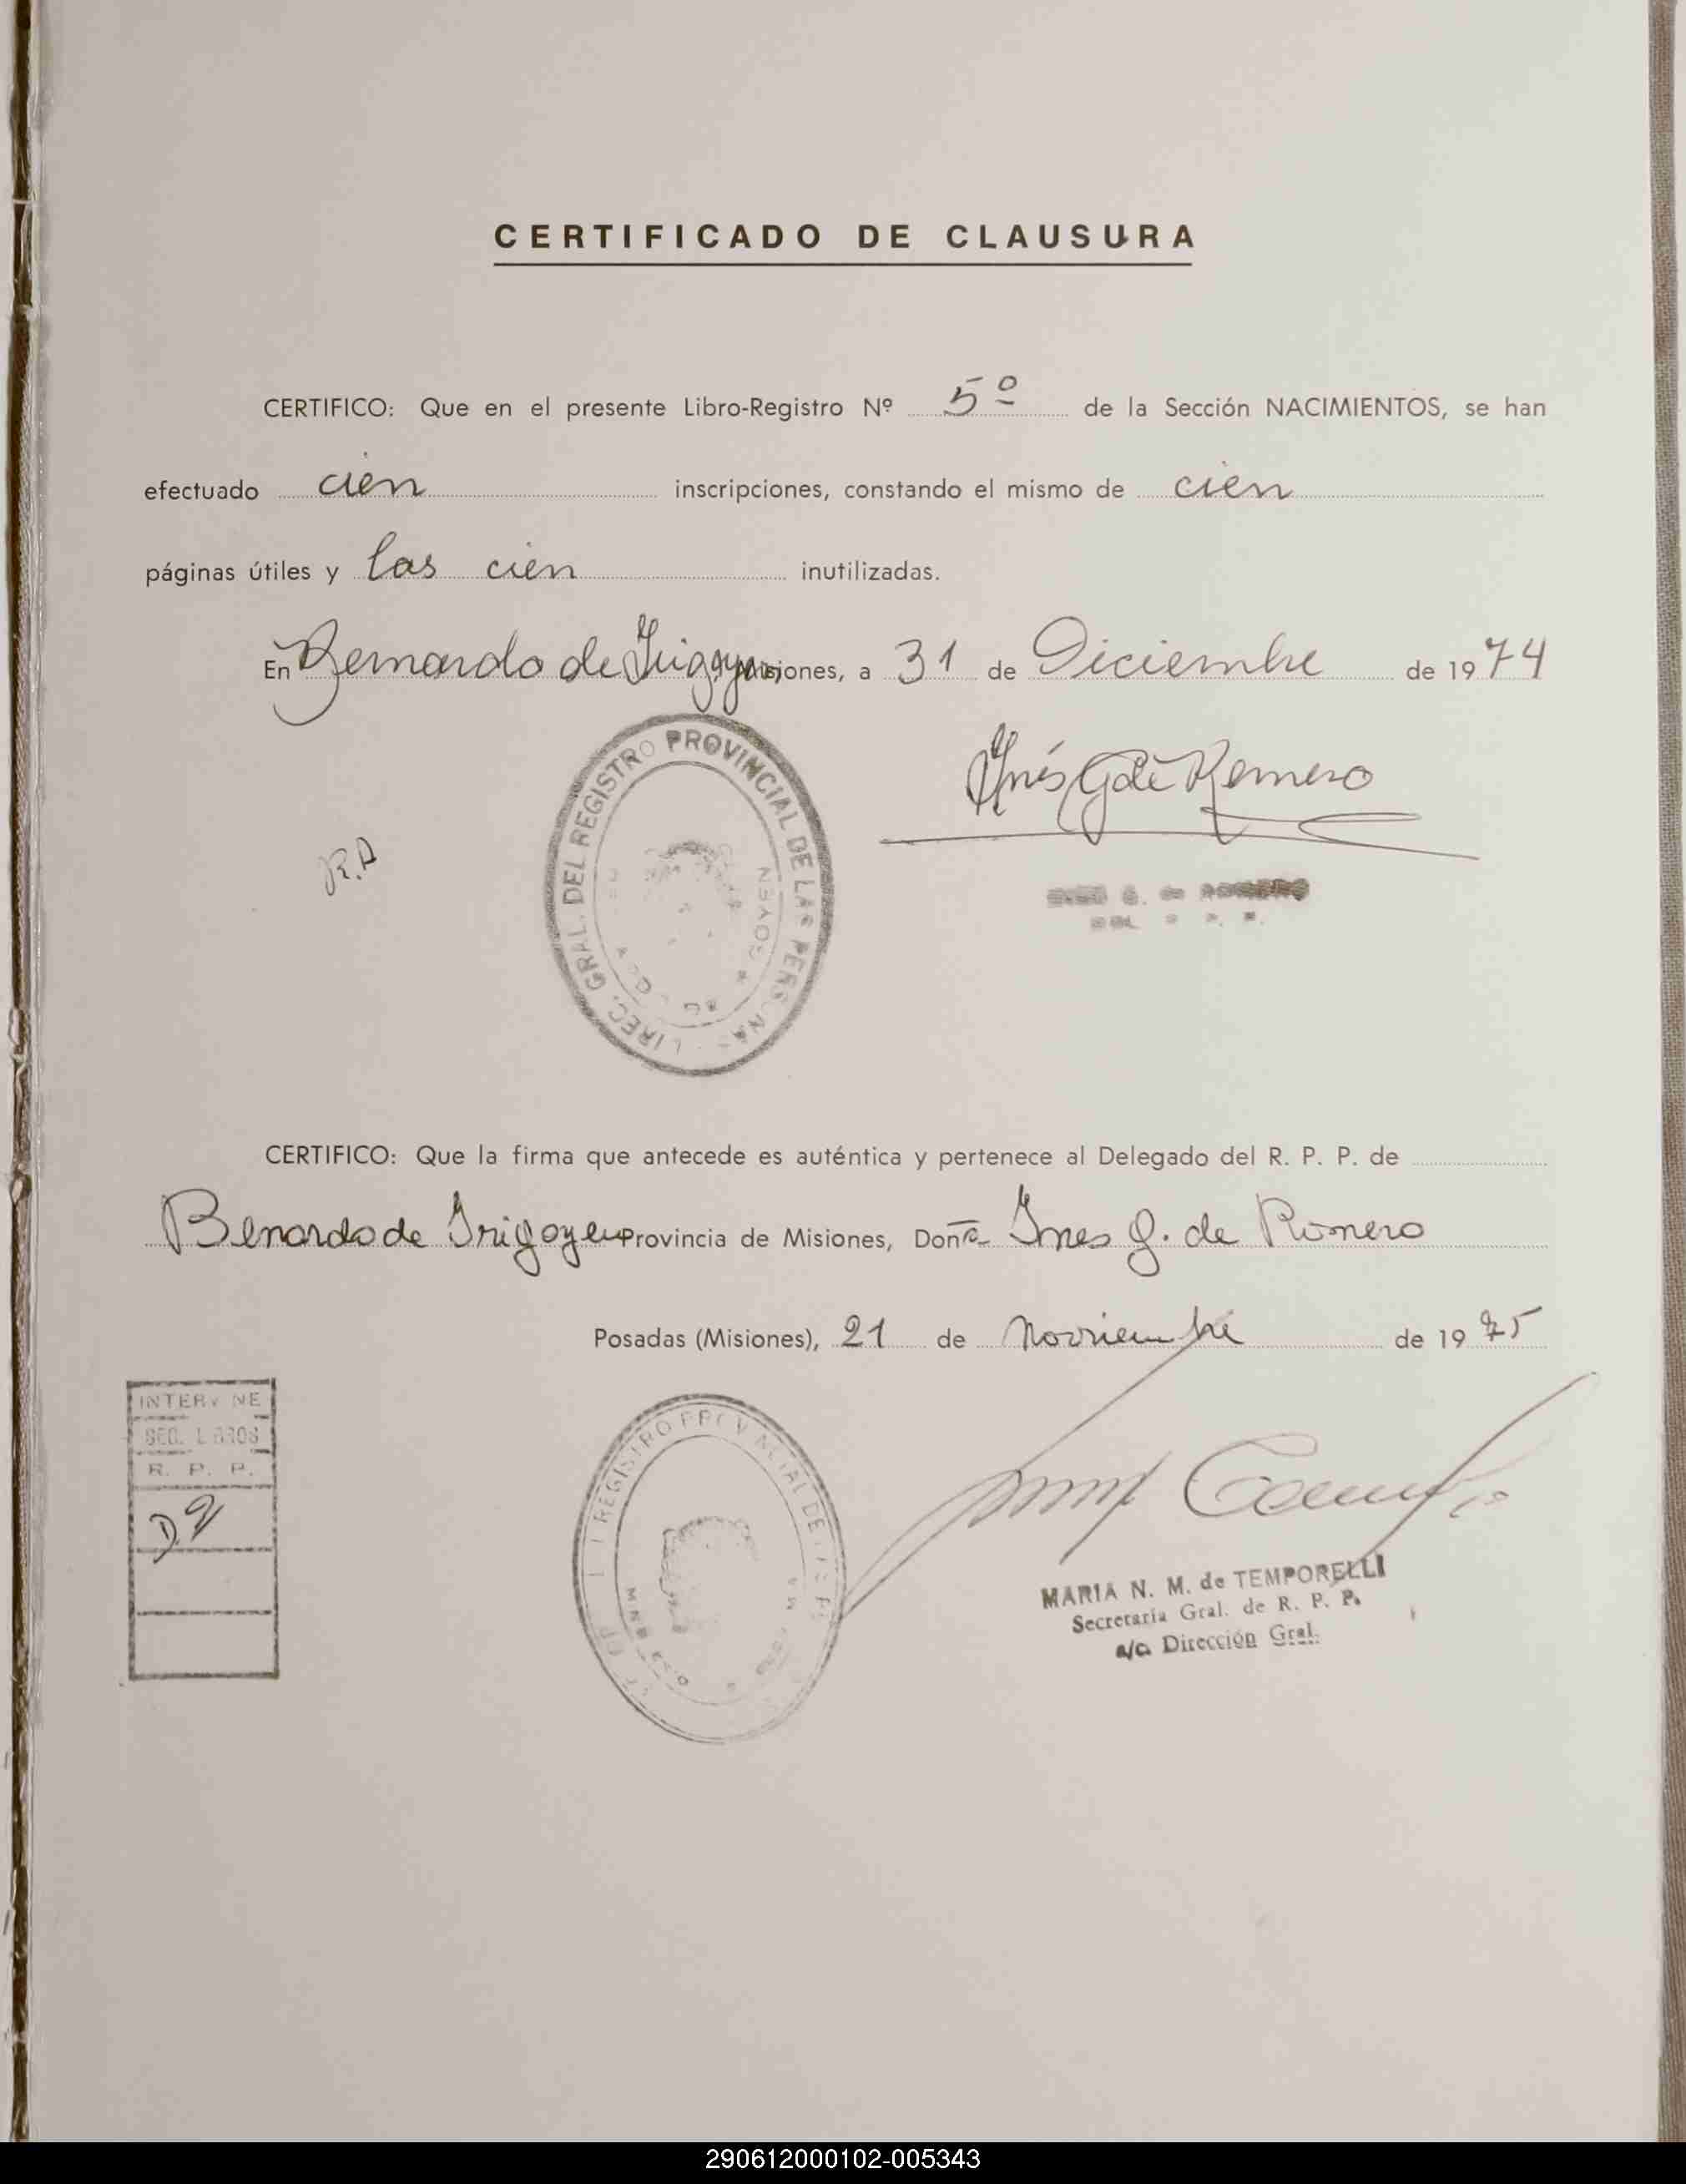 CERTIFICADO DE CLAUSURA
CERTIFICO: Que en el presente Libro-Registro Nº 5º de la Sección NACIMIENTOS, se han
efectuado cien inscripciones, constando el mismo de cien
páginas útiles y las cien inutilizadas.
En Bernardo de Irigoyen Misiones, a 31 de Diciembre de 1974
Inés G de Romero
R.A
DIREC. GRAL. DEL REGISTRO PROVINCIAL DE LAS PERSONAS
CERTIFICO: Que la firma que antecede es auténtica y pertenece al Delegado del R. P. P. de
Bernardo de Irigoyen Provincia de Misiones, Doña Ines G. de Romero
Posadas (Misiones), 21 de Noviembre de 1975
INTERVINE
SEC. LIBROS
R. P. P.
REGISTRO PROVINCIAL DE
MARIA N. M. de TEMPORELLI
Secretaria Gral. de R. P. P.
a/c. Dirección Gral.
290612000102-005343